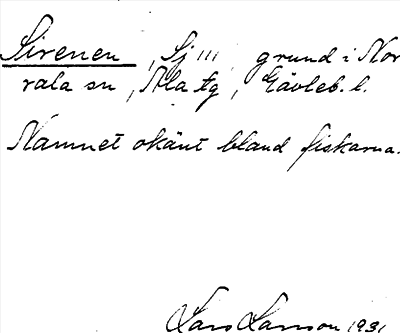 Sirenen, Sj III grund i Nor
rala sn, Ala tg, Gävleb. l.
Namnet okänt bland fiskarna.
Lars Larsson 1931